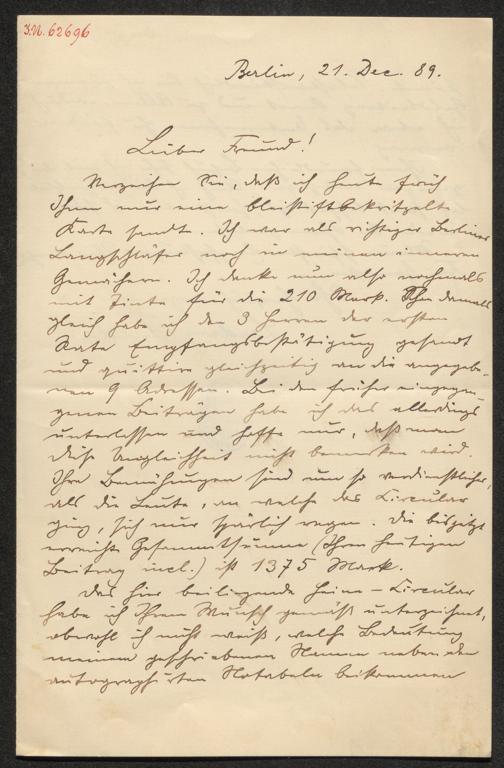 I.N. 62696
Berlin, 21. Dec. 89.
Lieber Freund!
Verzeihen Sie, daß ich heute früh
Ihnen nur eine bleistiftbekritzelte
Karte sandte. Ich war als richtiger Berliner
Langschläfer noch in meinen inneren
Gemächern. Ich danke nun also nochmals
mit Tinte für die 210 Mark. Schon damals
gleich habe ich den 3 Herren der ersten
Rate Empfangsbestätigung gesandt
und quittire gleichzeitig an die angegebe-
nen 9 Adressen. Bei den früher eingegan-
genen Beiträgen habe ich das allerdings
unterlassen und hoffe nur, daß man
diese Ungleichheit nicht bemerken wird.
Ihre Bemühungen sind um so verdienstlicher,
als die Leute, an welche das Circular
ging, sich nur spärlich regen. Die bis jetzt
erreichte Gesammtsumme (Ihren heutigen
Beitrag incl.) ist 1375 Mark.
Das hier beiliegende Heine-Circular
habe ich Ihrem Wunsch gemäß unterzeichnet,
obwohl ich nicht weiß, welche Bedeutung
meinem geschriebenen Namen neben den
autographirten Notabeln beikommen